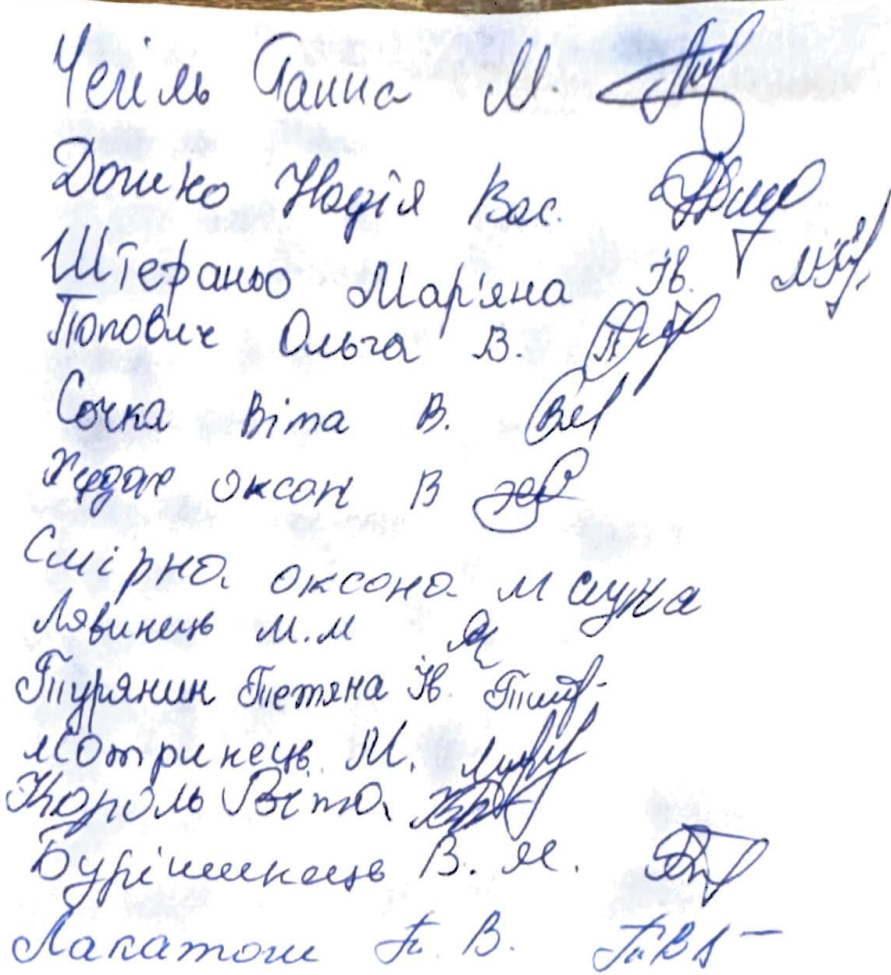 Чегіль Ганна М.
Дочинко Надія Вас.
Штефаньо Мар'яна Ів.
Попович Ольга В.
Сочка Віта В.
Худан Оксан В
Смірна оксана М
Лявинець М.М
Турянин Тетяна Ів.
Мотринець М.
Король Віта
Бурішинець В. М.
Лакатош Т. В.